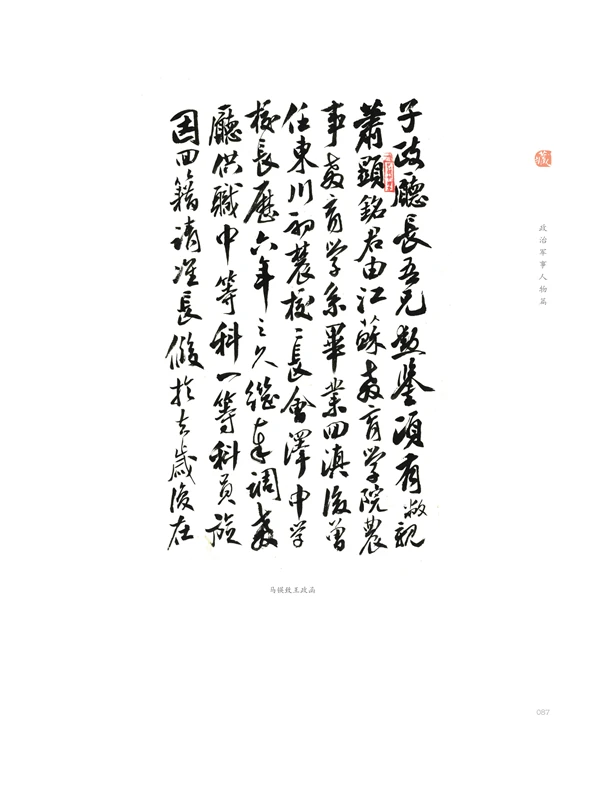 子政廳長吾兄勛鑒頃有敝親
蕭顯銘君由江蘇教育学院農
事教育学系畢業回滇後曾
任東川初農校長會澤中学
校長歷六年之久繼奉調教
廳供職中等科一等科員旋
因回籍請准長假於去歲後在
马锳致王政函
政治军事人物篇
087